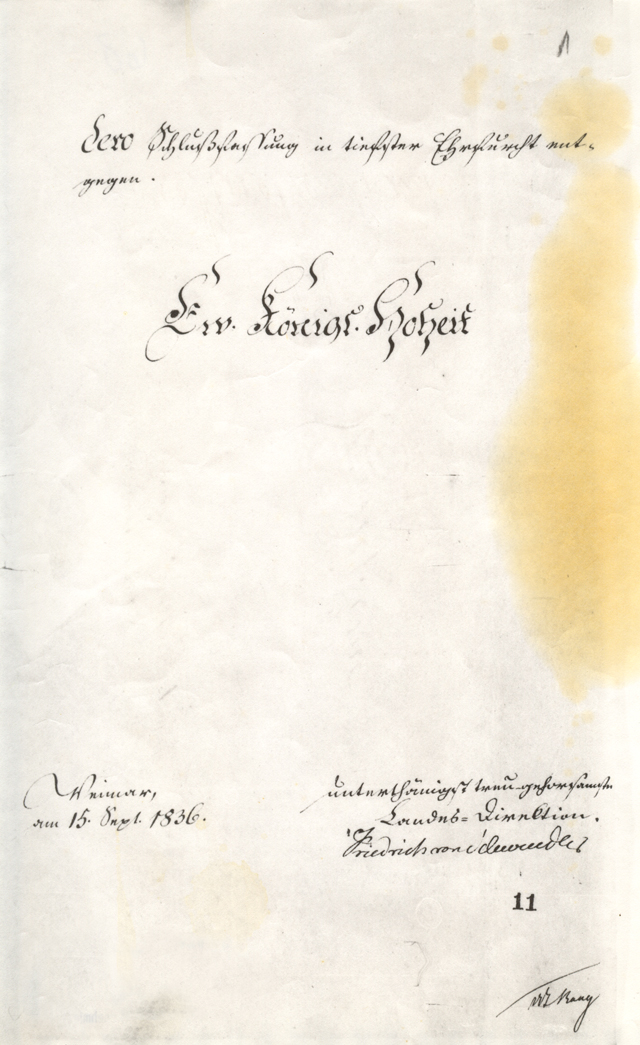 Dero Schlußfassung in tiefster Ehrfurcht ent-
gegen.
Ew. Königl. Hoheit
Weimar,
am 15. Sept. 1836.
unterthänigst treu-gehorsamste
Landes-Direktion.
Friedrich von
11